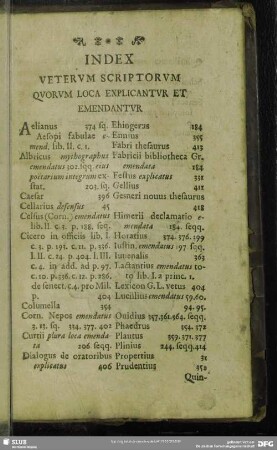 INDEX
VETERVM SCRIPTORVM
QVORVM LOCA EXPLICANTVR ET
EMENDANTVR
Aelianus 374 sq.
Aesopi fabulae e-
mend. lib. II. c. 1.
Albricus mythographus
emendatus 302. sqq. eius
poitarum integrum ex-
stat. 203. sq.
Caesar 396
Cellarius defensus 45
Celsus (Corn.) emendatus
lib. II. c. 3. p. 128. seq.
Cicero in officiis lib. I.
c. 3. p. 191. c. 11. p. 336.
l. II. c. 14. p. 404. l. III.
c. 4. in add. ad p. 97.
c. 10. p. 136. c. 12. p. 286.
de senect. c. 4. pro Mil.
p. 404
Columella 354
Corn. Nepos emendatus
3. 17. sq. 324. 377. 402
Curtii plura loca emenda-
ta 206 seqq.
Dialogus de oratoribus
explicatus 406
Ehingerus 184
Ennius 395
Fabri thesaurus 413
Fabricii bibliotheca Gr.
emendata 184
Festus explicatus 331
Gellius 412
Gesneri nouus thesaurus
418
Himerii declamatio e-
mendata 184. seqq.
Horatius 374. 376. 399
Iustin. emendatus 197. sqq.
Iuuenalis 363
Lactantius emendatus to-
to lib. I. a princ. 1.
Lexicon G. L. vetus 404
Lucilius emendatus 59. 60.
94. 95.
Ouidius 357. 361. 364. seqq.
Phaedrus 354. 372
Plautus 359. 371. 377
Plinius 244. seqq. 414
Propertius 31
Prudentius 352
Quin-
SLUB
DFG